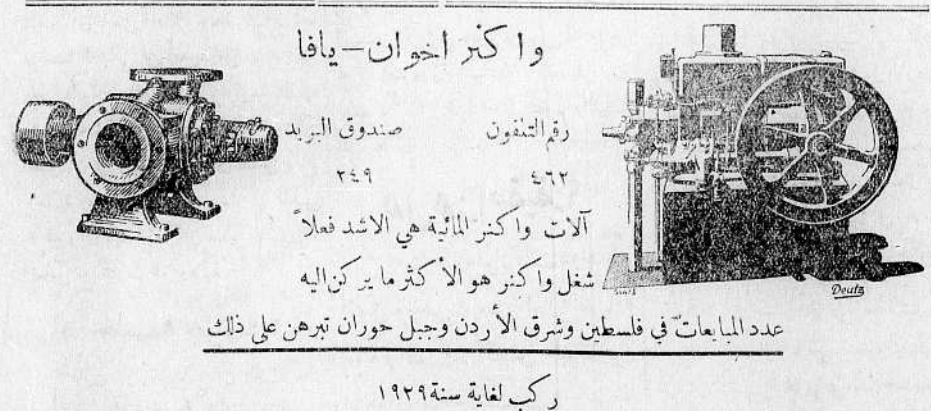 واكنر اخوان – يافا
رقم التلفون صندوق البريد
٤٦٢ ٢٤٩
آلات واكنر المائية هي الاشد فعلاً
شغل واكنر هو الأكثر ما يركن اليه
Deutz
عدد المبايعات في فلسطين وشرق الأردن وجبل حوران تبرهن على ذلك
ركب لغاية سنة ١٩٢٩